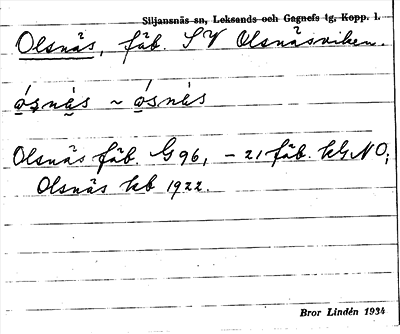 Siljansnäs sn, Leksands och Gagnefs tg, Kopp. l.
Olsnäs, fäb. SV Olsnäsviken.
ó̱snès ~ ó̱snès
Olsnäs fäb. G 96, – 21 fäb. hG NO;
Olsnäs kb 1922.
Bror Lindén 1934